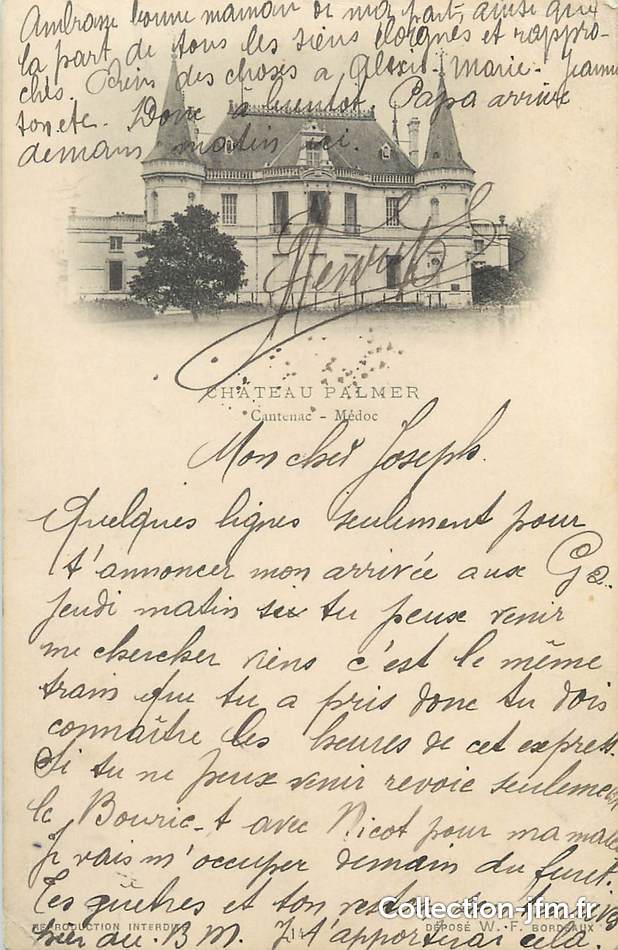 Embrasse bonne maman de ma part, ainsi que
la part de tous les siens éloignés et rappro-
chés. Bien des choses a Alexis. Marie. Jeanne
Donc a bientot Papa arrive
demain matin ici.
Henry
CHÂTEAU PALMER
Cantenac - Médoc
Mon cher Joseph.
Quelques lignes seulement pour
t'annoncer mon arrivée aux G
jeudi matin si tu peux venir
me chercher viens c'est le même
train que tu a pris donc tu dois
connaître les heures de cet express.
Si tu ne peux venir revoie seulement
le Bouric-t avec Nicot pour ma malle
Je vais m'occuper demain du furet.
Tes guêtres et ton veston sont
au B M. Je t'apporterai cela
REPRODUCTION INTERDITE
14
DÉPOSÉ W.-F. BORDEAUX
Collection-jfm.fr